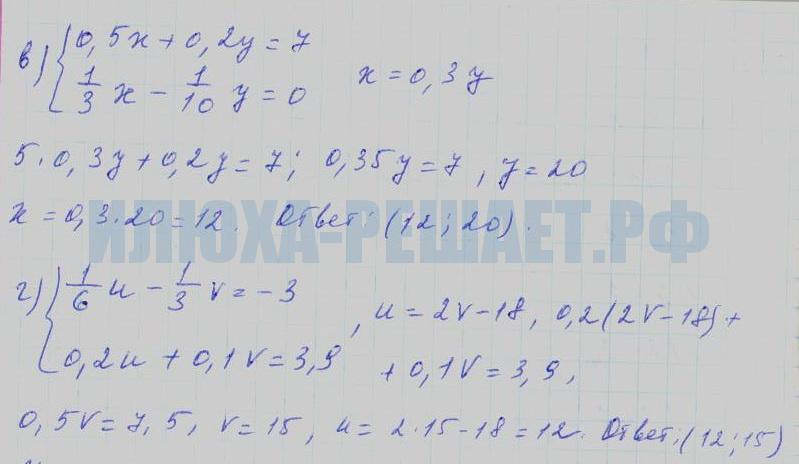 в) { 0,5x + 0,2y = 7
1/3 x − 1/10 y = 0     x = 0,3y
5 · 0,3y + 0,2y = 7; 0,35y = 7, y = 20
x = 0,3·20 = 12. Ответ: (12; 20).
ИЛЮХА-РЕШАЕТ.РФ
г) { 1/6 u − 1/3 v = −3
, u = 2v − 18, 0,2(2v − 18) +
0,2u + 0,1v = 3,9
+ 0,1v = 3,9,
0,5v = 7,5, v = 15, u = 2·15 − 18 = 12. Ответ: (12; 15)